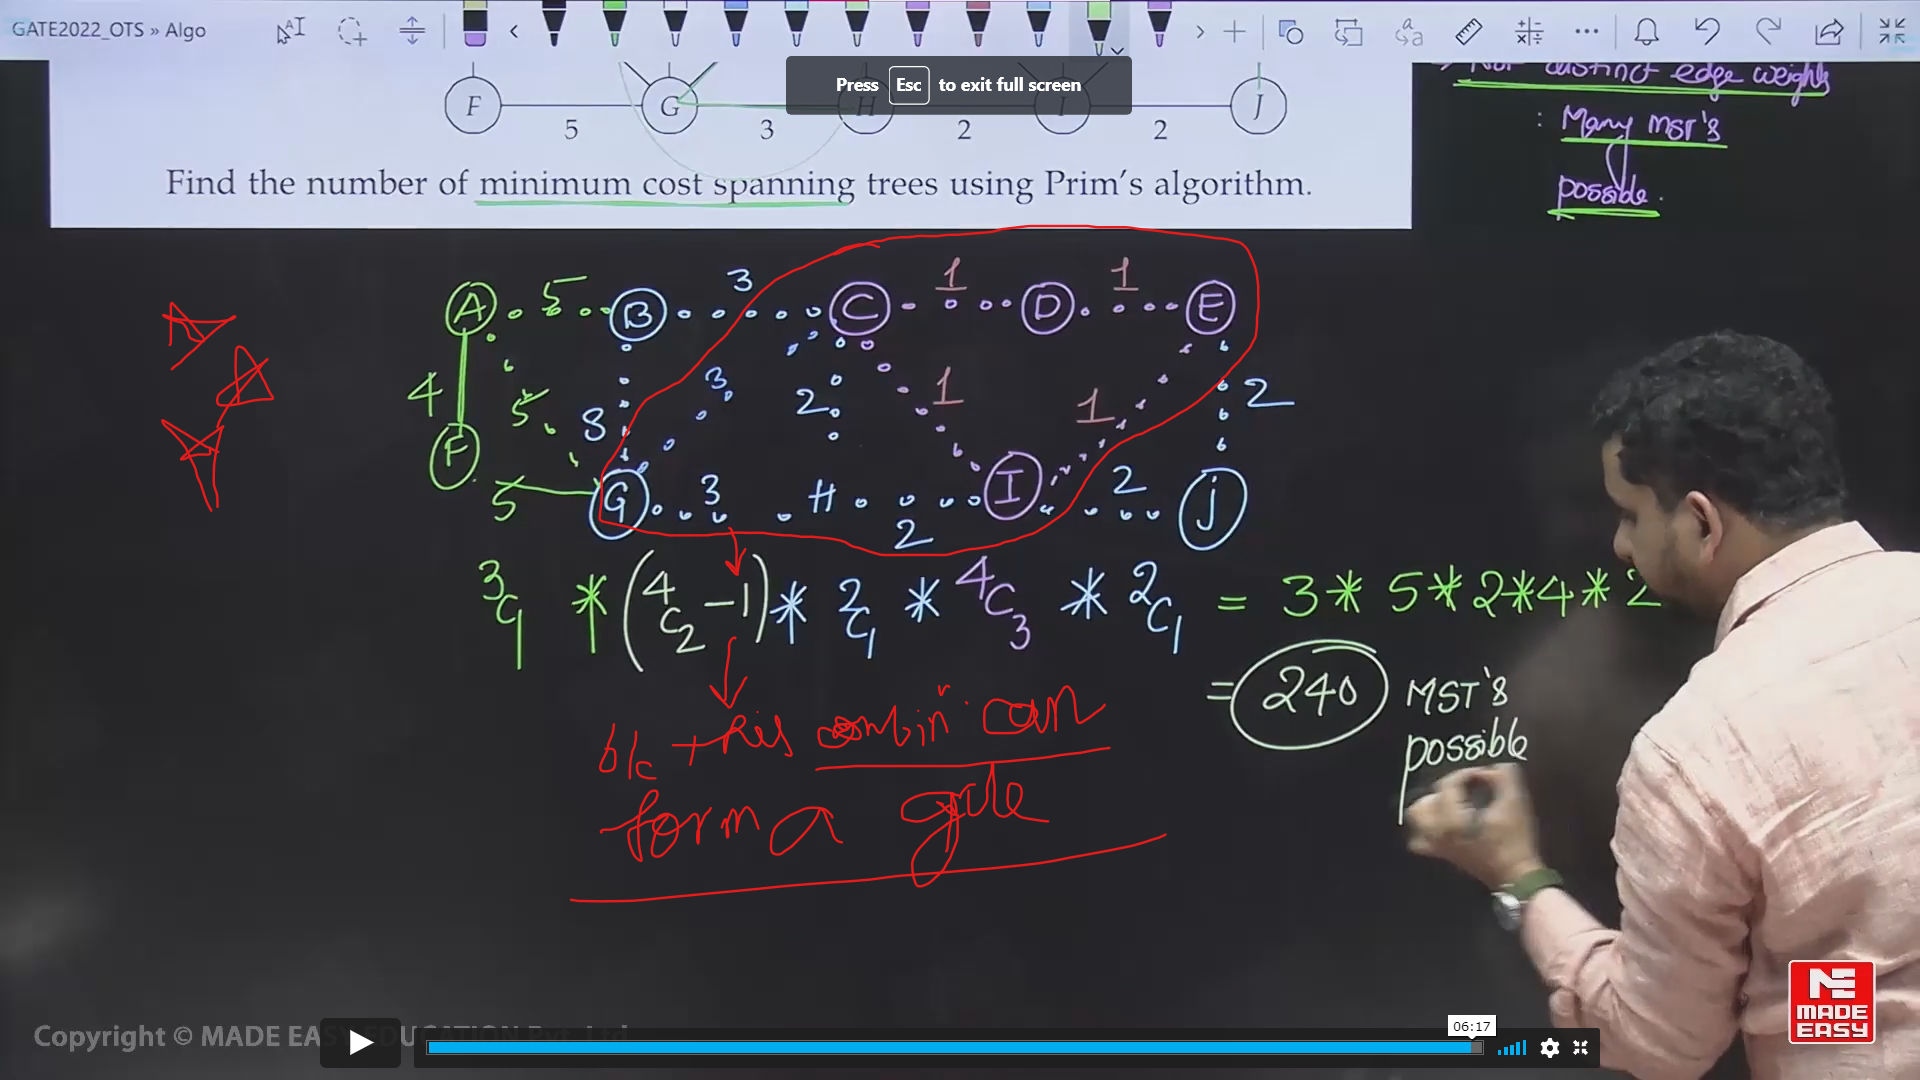 GATE2022_OTS » Algo
Press Esc to exit full screen
F G H I J
5 3 2 2
Find the number of minimum cost spanning trees using Prim's algorithm.
Not distinct edge weights
: Many MST's
possible.
A 5 B 3 C 1 D 1 E
4 5 8 3 2 1 1 2
F 5 G 3 H 2 I 2 J
3C1 * (4C2 - 1) * 2C1 * 4C3 * 2C1 = 3 * 5 * 2 * 4 * 2
= 240 MST's
possible
b/c this combinⁿ can
form a cycle
Copyright © MADE EASY EDUCATION Pvt. Ltd
06:17
MADE
EASY